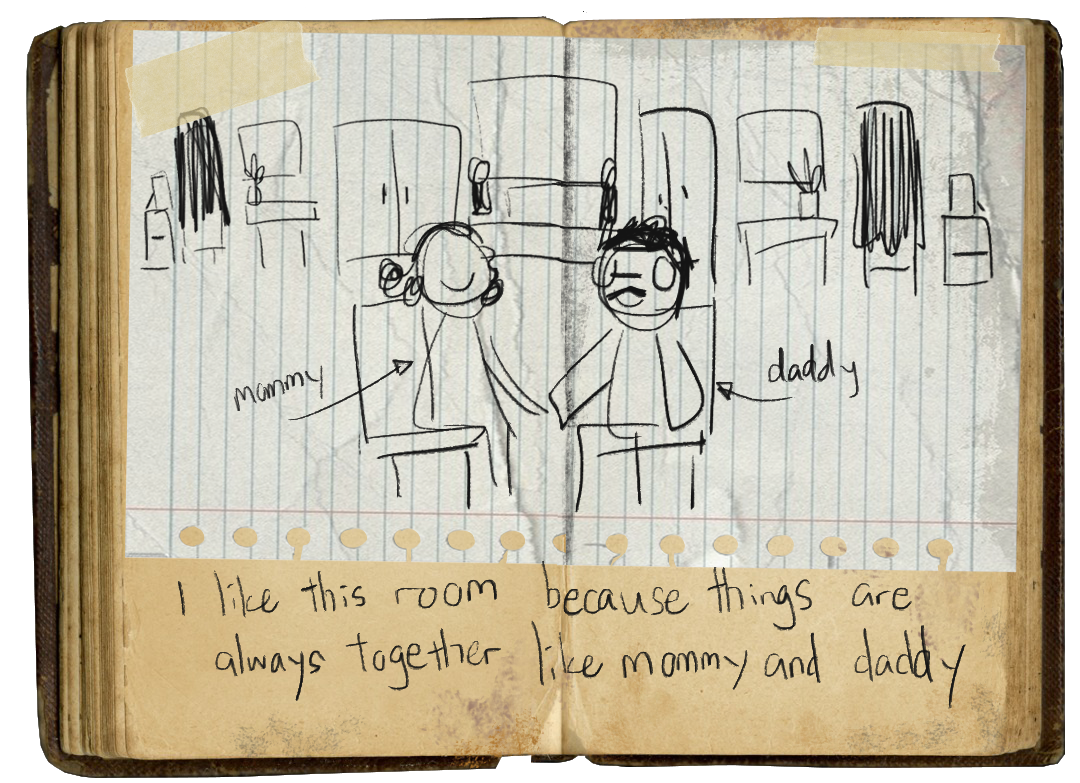 mommy
daddy
I like this room because things are
always together like mommy and daddy